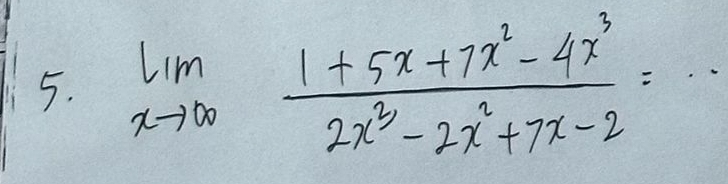 5. lim x→∞ (1 + 5x + 7x² - 4x³) / (2x³ - 2x² + 7x - 2) = ..